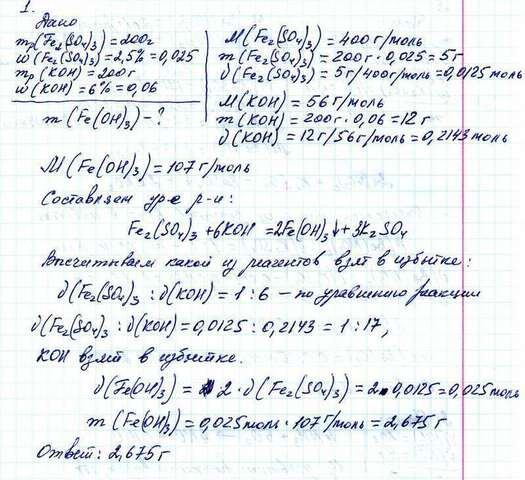 1.
Дано
mр(Fe₂(SO₄)₃) = 200г
ω(Fe₂(SO₄)₃) = 2,5% = 0,025
mр(KOH) = 200г
ω(KOH) = 6% = 0,06
m(Fe(OH)₃) - ?
M(Fe₂(SO₄)₃) = 400 г/моль
m(Fe₂(SO₄)₃) = 200г · 0,025 = 5г
ν(Fe₂(SO₄)₃) = 5г/400г/моль = 0,0125 моль
M(KOH) = 56 г/моль
m(KOH) = 200г · 0,06 = 12 г
ν(KOH) = 12г/56 г/моль = 0,2143 моль
M(Fe(OH)₃) = 107 г/моль
Составляем ур-е р-и:
Fe₂(SO₄)₃ + 6KOH = 2Fe(OH)₃↓ + 3K₂SO₄
Высчитываем какой из реагентов взят в избытке:
ν(Fe₂(SO₄)₃ : ν(KOH) = 1 : 6 – по уравнению реакции
ν(Fe₂(SO₄)₃ : ν(KOH) = 0,0125 : 0,2143 = 1 : 17,
KOH взят в избытке.
ν(Fe(OH)₃) = 2 · ν(Fe₂(SO₄)₃) = 2 · 0,0125 = 0,025 моль
m(Fe(OH)₃) = 0,025 моль · 107 г/моль = 2,675 г
Ответ: 2,675 г